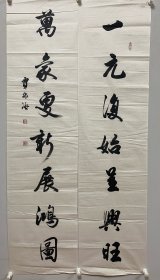 一元復始呈興旺
萬象更新展鴻圖